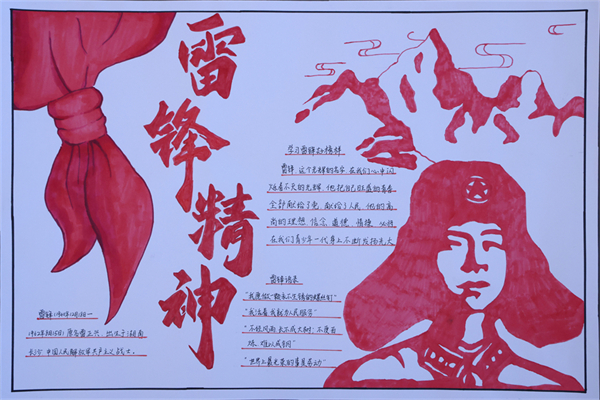 雷锋精神
学习雷锋好榜样
雷锋,这个光辉的名字,在我们心中闪
烁着不灭的光辉,他把自己旺盛的青春
全部献给了党,献给了人民,他的高
尚的理想、信念、道德、情操,必将
在我们青少年一代身上不断发扬光大
雷锋语录
"我愿做一颗永不生锈的螺丝钉"
"我活着就为人民服务"
"不经风雨,长不成大树;不受百
炼,难以成钢"
"世界上最光荣的事是劳动"
雷锋(1940年12月18日—
1962年8月15日)原名雷正兴,出生于湖南
长沙,中国人民解放军共产主义战士。